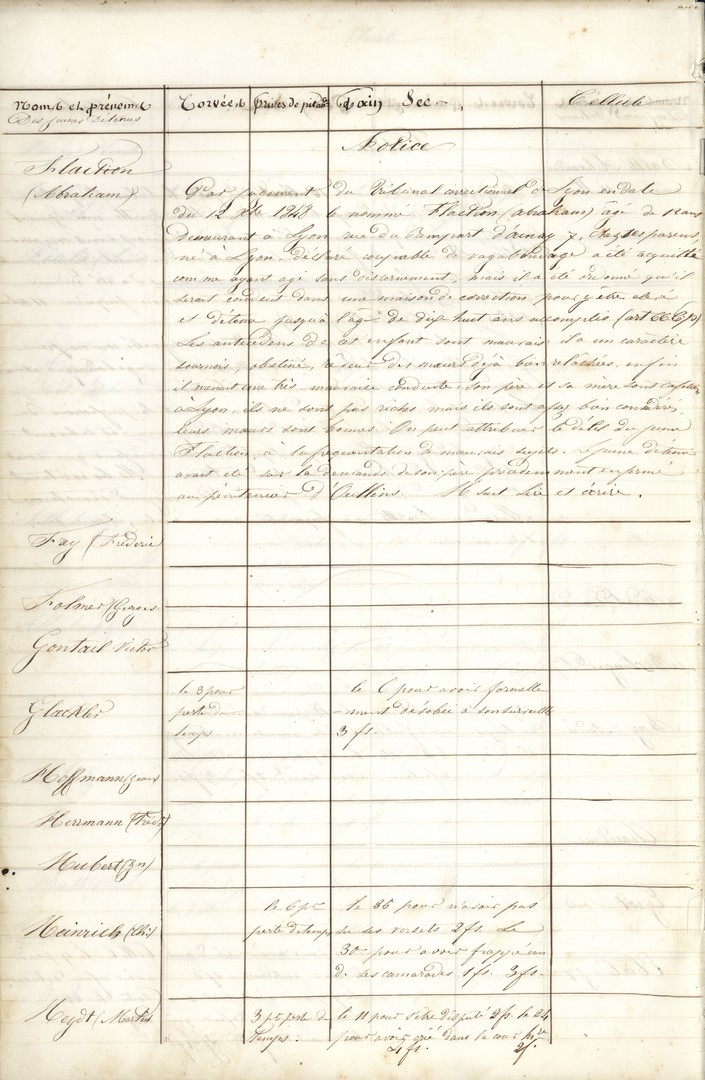 Noms et prénoms Corvées prises de pitance Pain Sec Cellule
des jeunes détenus
Notice
Flaction
(Abraham)
Par jugement du Tribunal correctionnel de Lyon en date
du 12 Xbre 1848 le nommé Flaction (Abraham) âgé de 12 ans
demeurant à Lyon rue du Rempart d'Ainay 7, chez ses parens,
né à Lyon, déclaré coupable de vagabondage a été acquitté
comme ayant agi sans discernement, mais il a été ordonné qu'il
serait conduit dans une maison de correction pour y être élevé
et détenu jusqu'à l'âge de dix huit ans accomplis (art 66 C.p)
Les antécédens de cet enfant sont mauvais; il a un caractère
sournois, obstiné, des mœurs déjà bien relâchées, enfin
il menait une très mauvaise conduite. Son père et sa mère sont
à Lyon, ils ne sont pas riches mais ils sont assez bien considérés
leurs mœurs sont bonnes. On peut attribuer le délit du jeune
Flaction, à la fréquentation de mauvais sujets. Le jeune détenu
avait été sur la demande de son père précédemment enfermé
au pénitencier d'Oullins. Il sait lire et écrire.
Fay (Frédéric
Folmer (Georges
Gontail Victor
Glackler
le 3 pour
perte de
temps
le 6 pour avoir formelle
-ment désobéi à son surveillt
3 fs.
Hoffmann (Jean)
Herrmann (Fréd)
Hubert (Jn)
Heinrich (Chs)
le 6 pr
perte de temps
le 26 pour n'avoir pas
su ses versets 2 fs. Le
30 pour avoir frappé un
de ses camarades 1 fs. 3 fs.
Heydt (Martin
3 pr perte de
temps.
le 11 pour s'être disputé 2 fs. le 24
pour avoir crié dans la cour
4 fs. 2 fs.